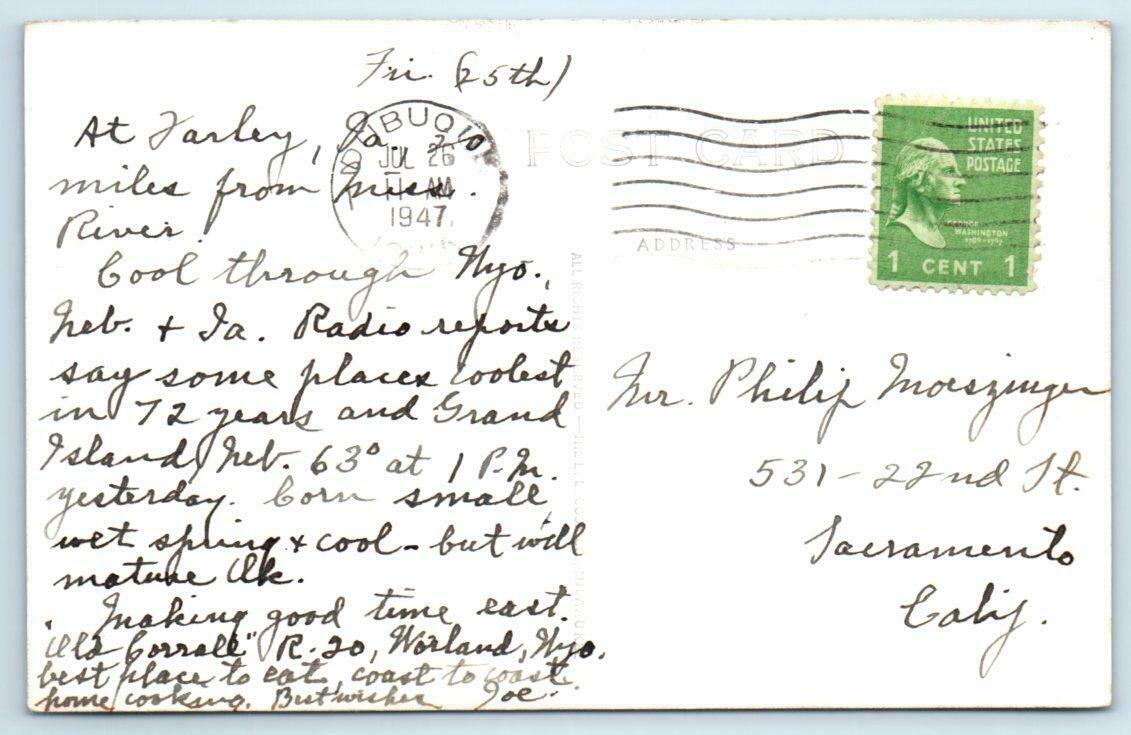 Fri. (25th)
At Farley, Ia. 20
miles from Miss.
River.
Cool through Wyo.,
Neb. + Ia. Radio reports
say some places coolest
in 72 years and Grand
Island, Neb. 63° at 1 P.M.
yesterday. Corn small,
wet spring + cool - but will
mature Ok.
Making good time east.
Old Corrall" R. 20, Worland, Wyo.
best place to eat, coast to coast.
home cooking. Best wishes Joe.
DUBUQUE
JUL 26
11 AM
1947
POST CARD
ADDRESS
UNITED
STATES
POSTAGE
WASHINGTON
1789-1797
1 CENT 1
ALL RIGHTS RESERVED
Mr. Philip Moeszinger
531-22nd St.
Sacramento
Calif.